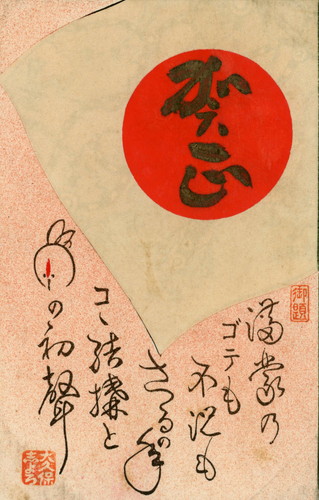 賀正
御題
満蒙の
ゴテも
不況も
さるの年
コヽ結構と
の初聲
大久保